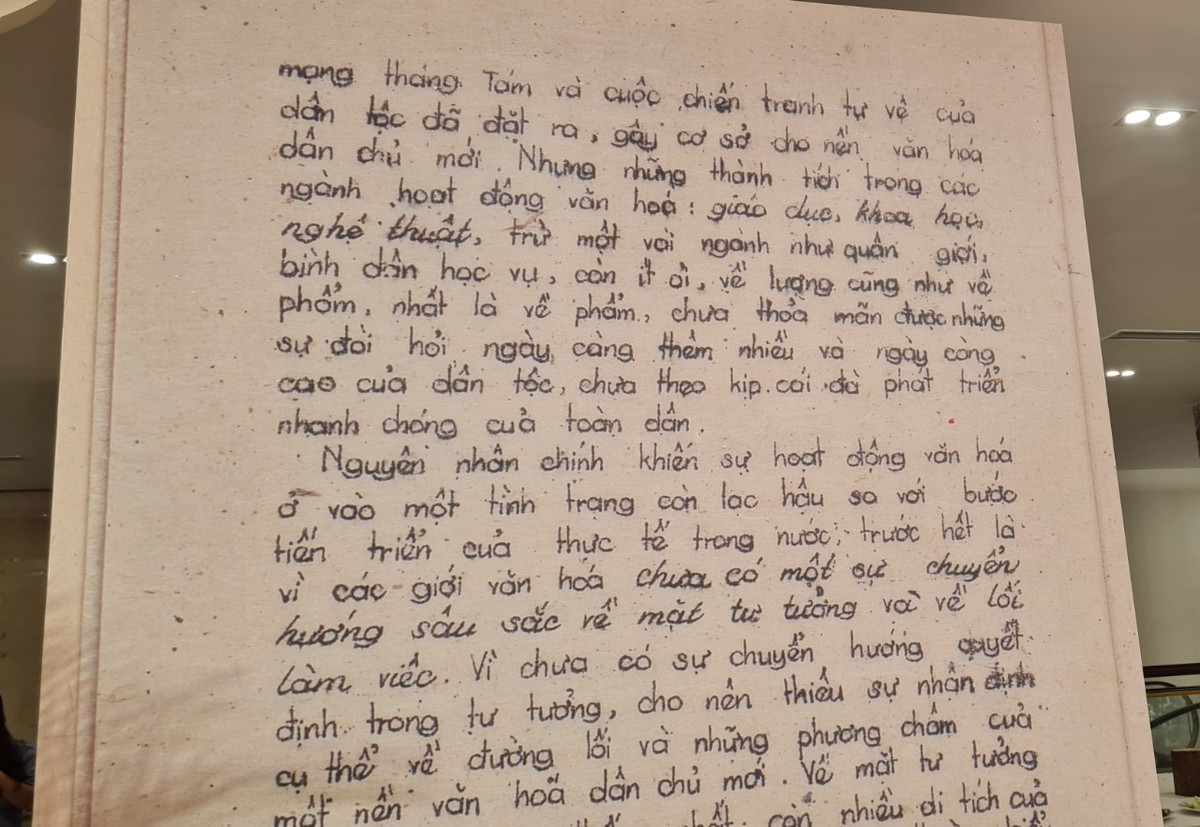 mạng tháng Tám và cuộc chiến tranh tự vệ của
dân tộc đã đặt ra, gây cơ sở cho nền văn hóa
dân chủ mới. Nhưng những thành tích trong các
ngành hoạt động văn hoá: giáo dục, khoa học,
nghệ thuật, trừ một vài ngành như quân giới,
bình dân học vụ, còn ít ỏi, về lượng cũng như về
phẩm, nhất là về phẩm, chưa thỏa mãn được những
sự đòi hỏi ngày càng thêm nhiều và ngày càng
cao của dân tộc, chưa theo kịp cái đà phát triển
nhanh chóng của toàn dân.
Nguyên nhân chính khiến sự hoạt động văn hoá
ở vào một tình trạng còn lạc hậu so với bước
tiến triển của thực tế trong nước, trước hết là
vì các giới văn hoá chưa có một sự chuyển
hướng sâu sắc về mặt tư tưởng và về lối
làm việc. Vì chưa có sự chuyển hướng quyết
định trong tư tưởng, cho nên thiếu sự nhận định
cụ thể về đường lối và những phương châm của
một nền văn hoá dân chủ mới. Về mặt tư tưởng
còn nhiều di tích của